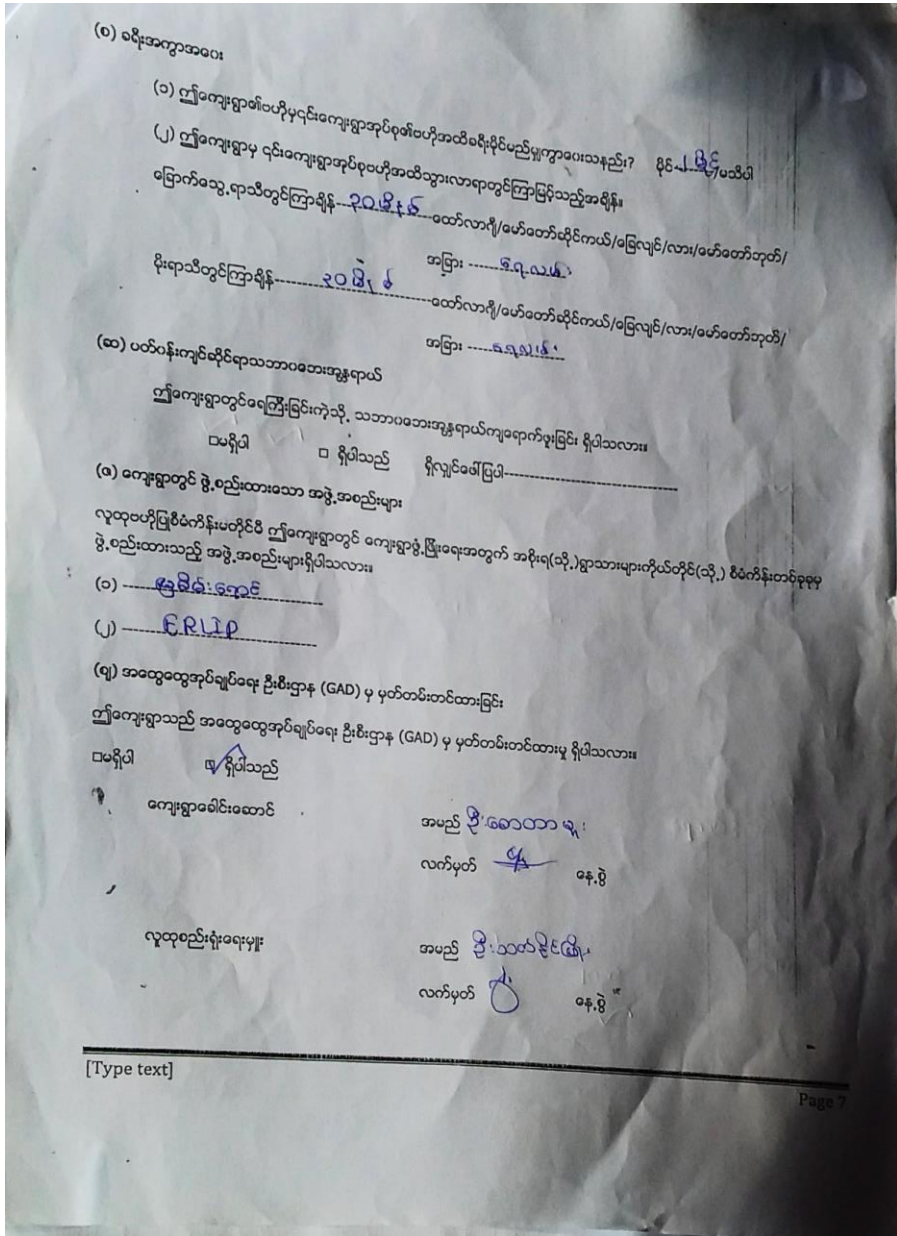 (စ) ခရီးအကွာအဝေး
(၁) ဤကျေးရွာ၏ဗဟိုမှ၎င်းကျေးရွာအုပ်စု၏ဗဟိုအထိခရီးမိုင်မည်မျှကွာဝေးသနည်း? မိုင် ၂ မိုင် /မသိပါ
(၂) ဤကျေးရွာမှ ၎င်းကျေးရွာအုပ်စုဗဟိုအထိသွားလာရာတွင်ကြာမြင့်သည့်အချိန်။
ခြောက်သွေ့ရာသီတွင်ကြာချိန်---၃၀ မိနစ်---ထော်လာဂျီ/မော်တော်ဆိုင်ကယ်/ခြေလျင်/လား/မော်တော်ဘုတ်/
အခြား -------ရေလမ်း
မိုးရာသီတွင်ကြာချိန်---------၃၀ မိနစ်---------ထော်လာဂျီ/မော်တော်ဆိုင်ကယ်/ခြေလျင်/လား/မော်တော်ဘုတ်/
အခြား -----ရေလမ်း
(ဆ) ပတ်ဝန်းကျင်ဆိုင်ရာသဘာဝဘေးအန္တရာယ်
ဤကျေးရွာတွင်ရေကြီးခြင်းကဲ့သို့ သဘာဝဘေးအန္တရာယ်ကျရောက်ဖူးခြင်း ရှိပါသလား။
□မရှိပါ □ ရှိပါသည် ရှိလျှင်ဖေါ်ပြပါ---------------------------
(ဇ) ကျေးရွာတွင် ဖွဲ့စည်းထားသော အဖွဲ့အစည်းများ
လူထုဗဟိုပြုစီမံကိန်းမတိုင်မီ ဤကျေးရွာတွင် ကျေးရွာဖွံ့ဖြိုးရေးအတွက် အစိုးရ(သို့)ရွာသားများကိုယ်တိုင်(သို့) စီမံကိန်းတစ်ခုခုမှ
ဖွဲ့စည်းထားသည့် အဖွဲ့အစည်းများရှိပါသလား။
(၁) ---မြစိမ်းရောင်
(၂) ------ERLIP
(ဈ) အထွေထွေအုပ်ချုပ်ရေး ဦးစီးဌာန (GAD) မှ မှတ်တမ်းတင်ထားခြင်း
ဤကျေးရွာသည် အထွေထွေအုပ်ချုပ်ရေး ဦးစီးဌာန (GAD) မှ မှတ်တမ်းတင်ထားမှု ရှိပါသလား။
□မရှိပါ □ ရှိပါသည်
ကျေးရွာခေါင်းဆောင် အမည် ဦး
လက်မှတ် နေ့စွဲ
လူထုစည်းရုံးရေးမှူး အမည် ဦး
လက်မှတ် နေ့စွဲ
[Type text]
Page 7